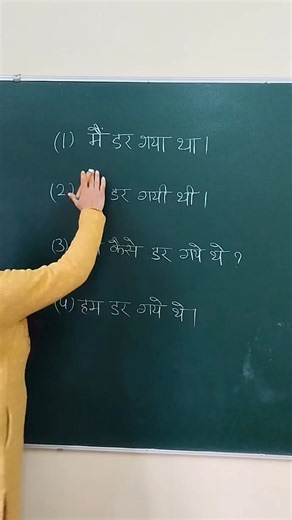 (1) मैं डर गया था।
(2) डर गयी थी।
(3) कैसे डर गये थे ?
(4) हम डर गये थे।